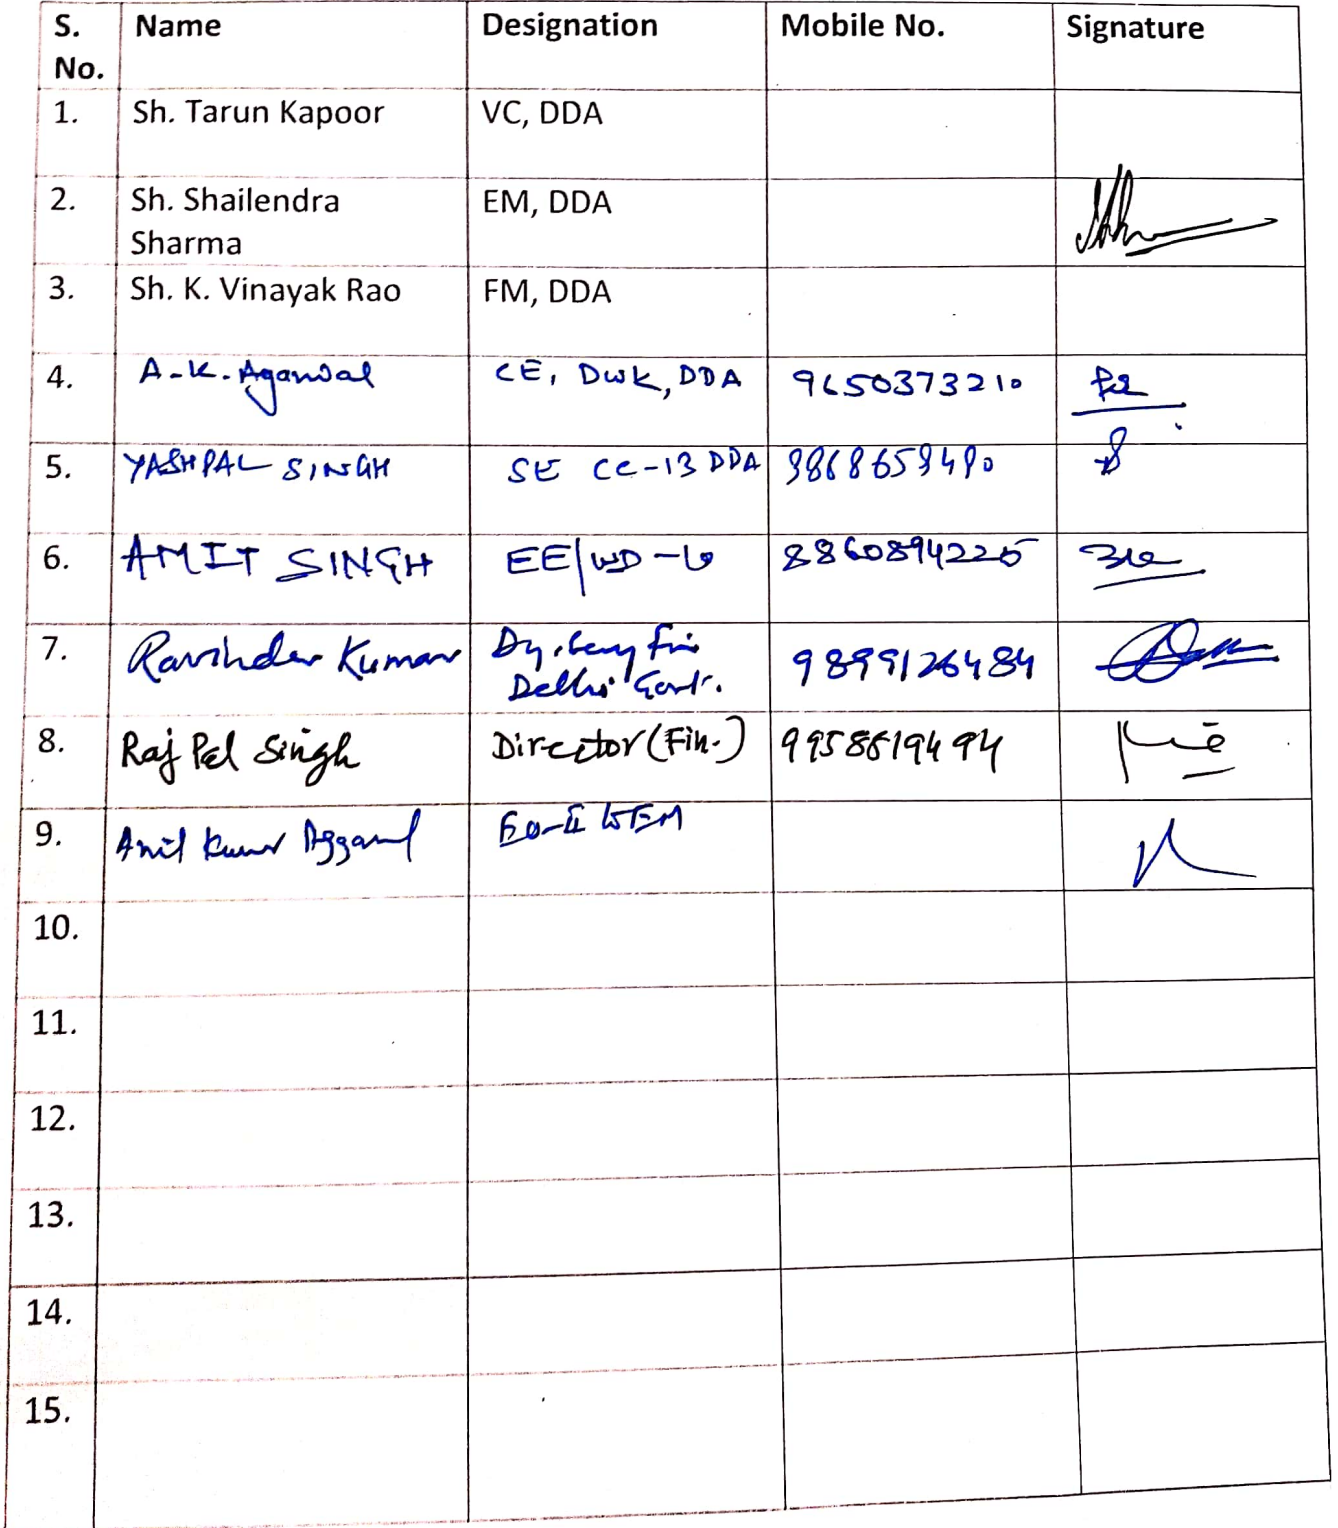 S. No. Name Designation Mobile No. Signature
1. Sh. Tarun Kapoor VC, DDA
2. Sh. Shailendra Sharma EM, DDA
3. Sh. K. Vinayak Rao FM, DDA
4. A.K. Agarwal CE, DWK, DDA 9650373210
5. YASHPAL SINGH SE CC-13 DDA 9868659490
6. AMIT SINGH EE/WD-6 8860894225
7. Ravinder Kumar Dy. Secy Fin Delhi Govt. 9899126484
8. Raj Pal Singh Director (Fin.) 9958819494
9. Anil Kumar Aggarwal EO-II
10.
11.
12.
13.
14.
15.